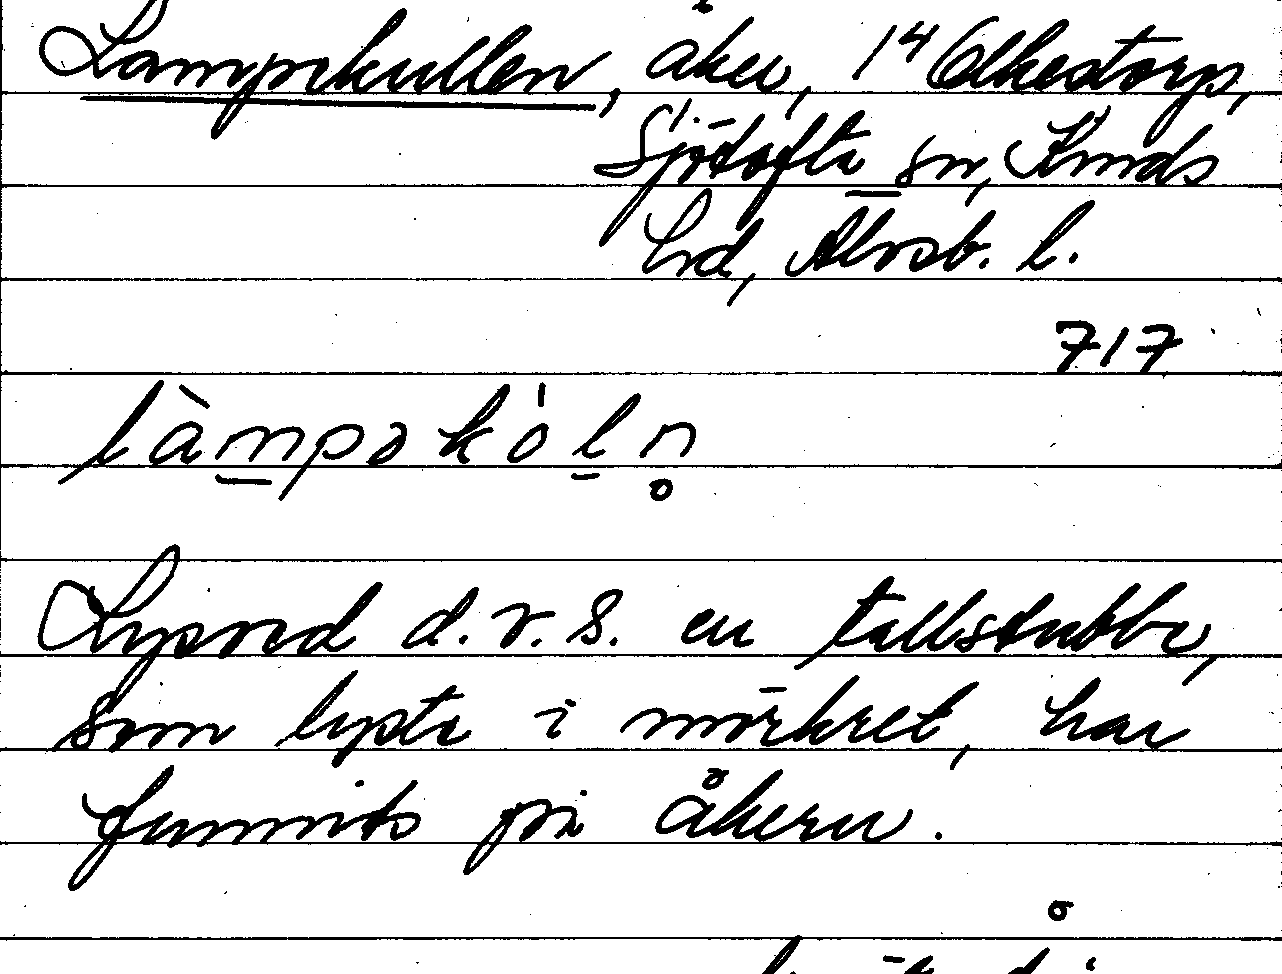 Lampekullen, åker, 1⁴ Olkestorp,
Sjötofta sn, Kinds
hd, Älvsb. l.
717
làmpəkóln̥
Lysved d.v.s. en tallstubbe,
som lyste i mörkret, har
funnits på åkern.